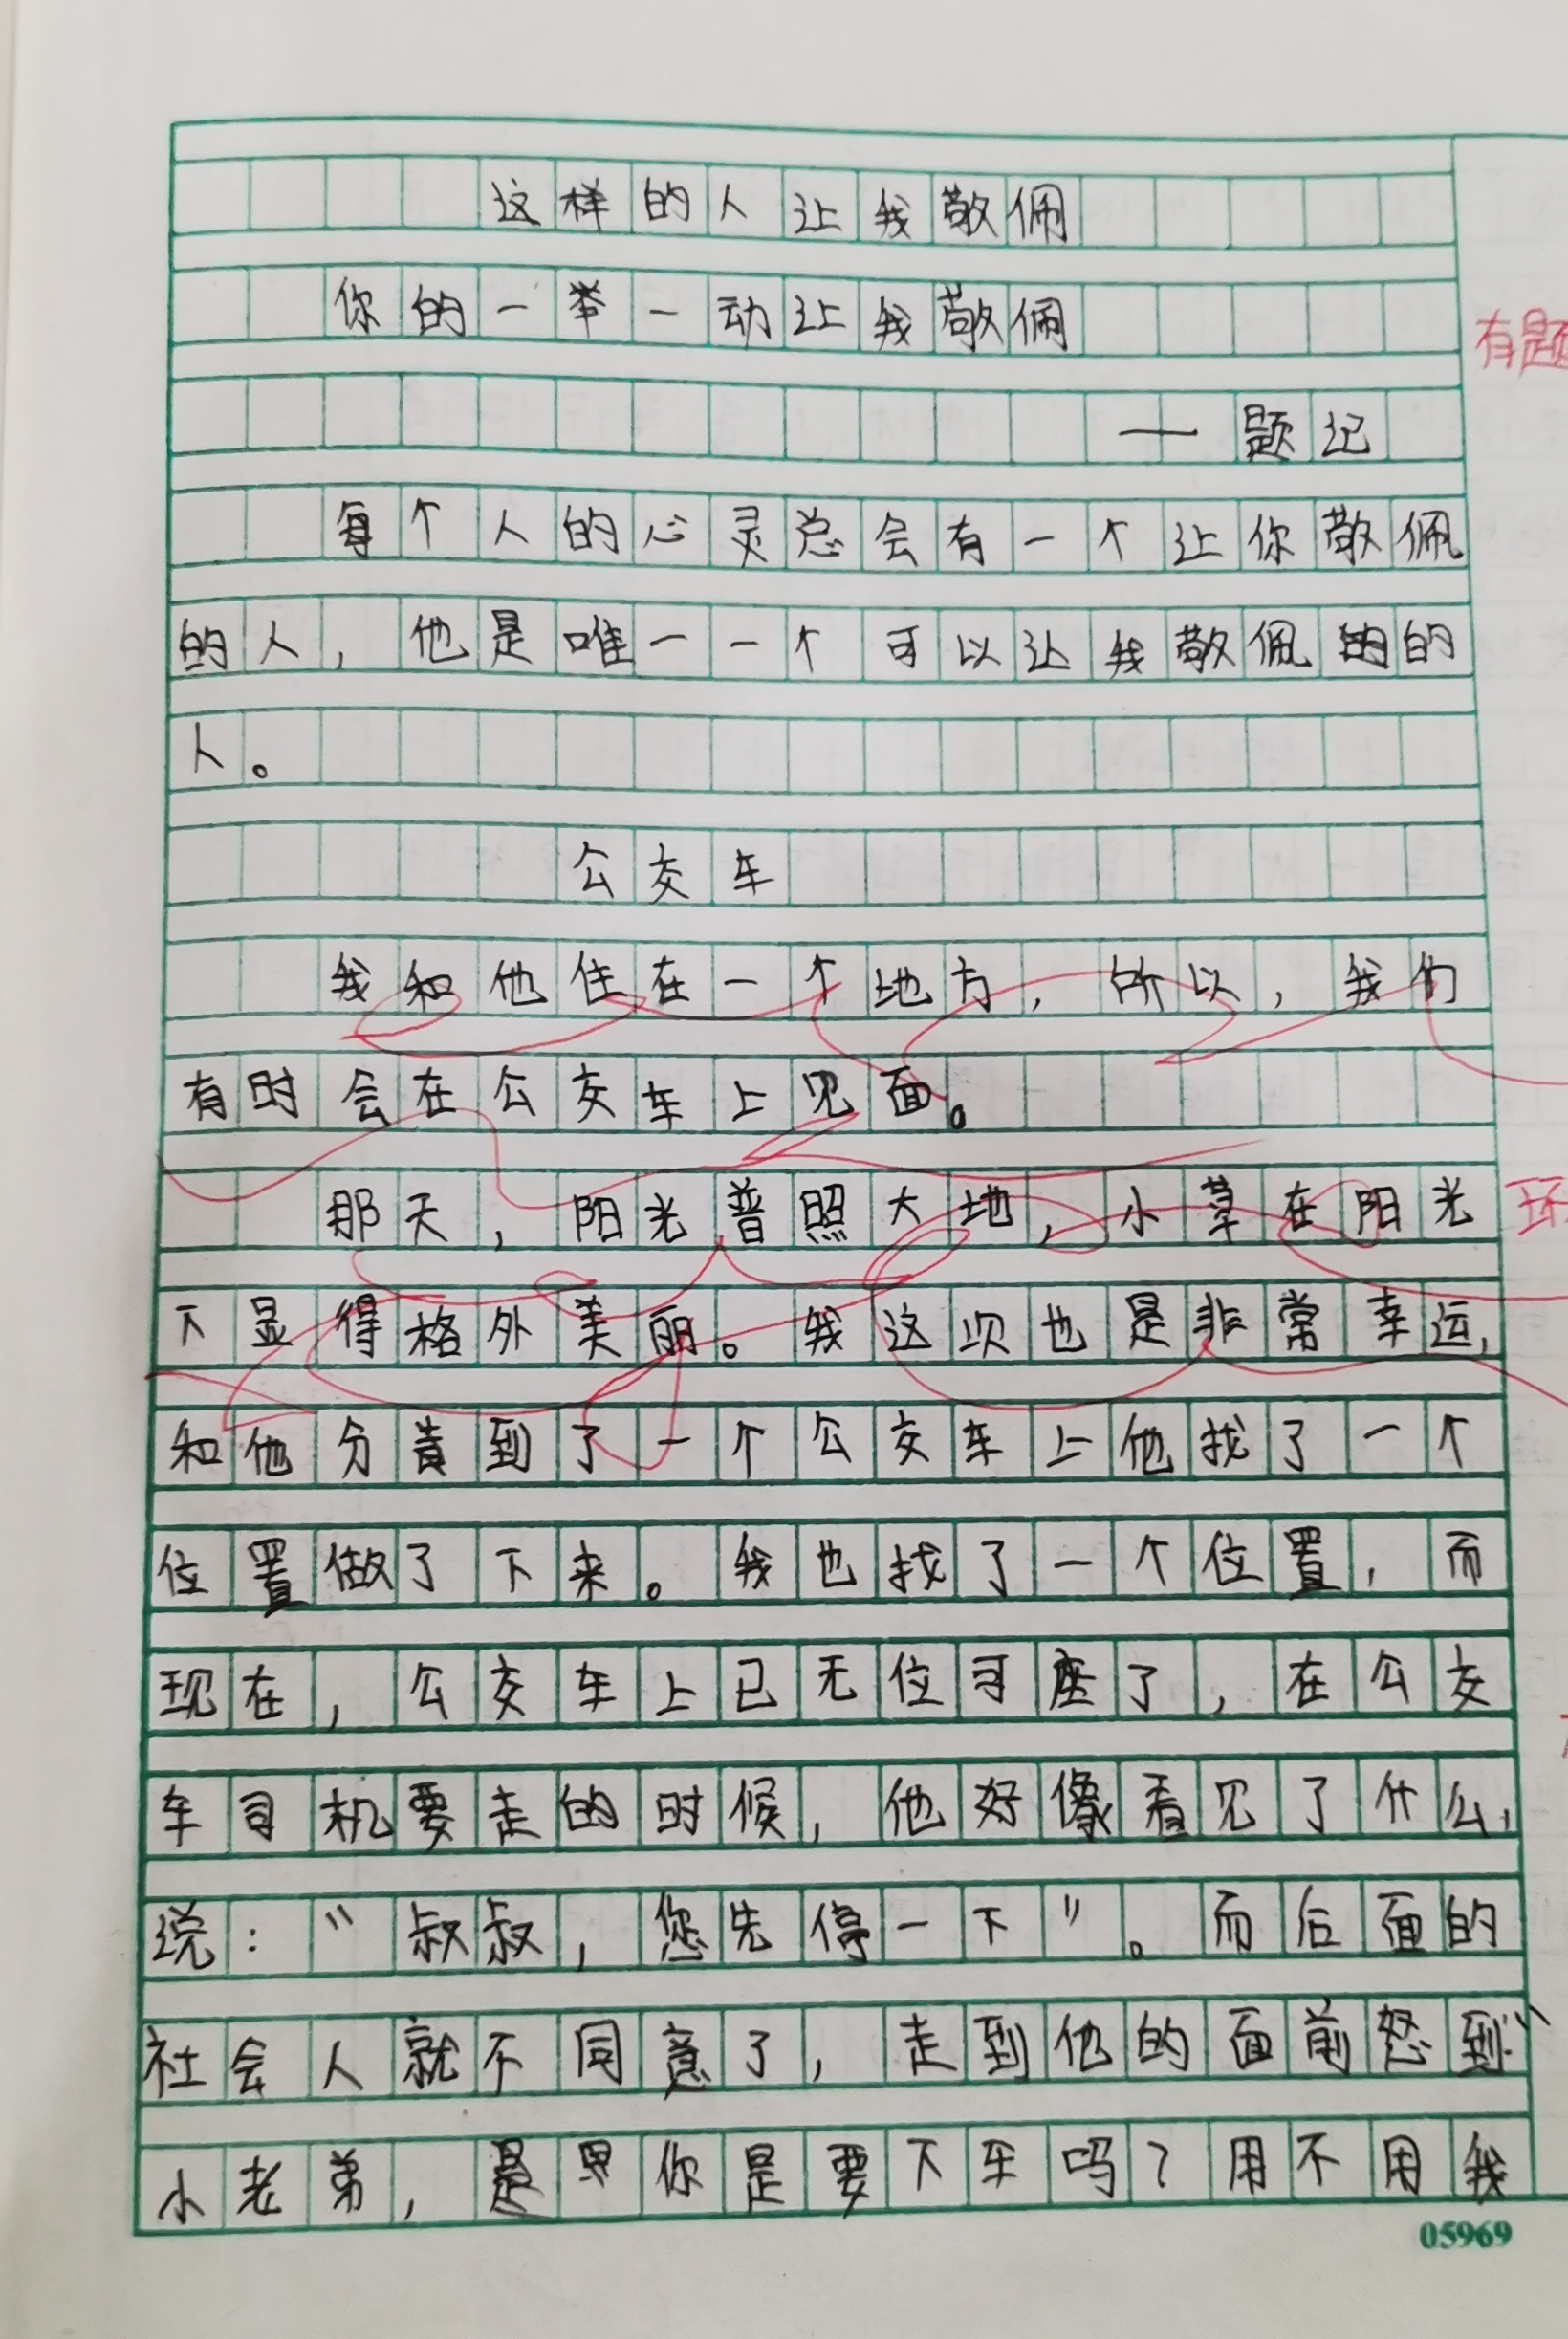 这样的人让我敬佩
你的一举一动让我敬佩
有题
——题记
每个人的心灵总会有一个让你敬佩
的人，他是唯一一个可以让我敬佩的
人。
公交车
我和他住在一个地方，所以，我们
有时会在公交车上见面。
那天，阳光普照大地，小草在阳光
环
下显得格外美丽。我这次也是非常幸运，
和他分责到了一个公交车上他找了一个
位置做了下来。我也找了一个位置，而
现在，公交车上已无位可座了，在公交
车司机要走的时候，他好像看见了什么，
说：“叔叔，您先停一下”。而后面的
社会人就不同意了，走到他的面前怒到：“
小老弟，你是要下车吗？用不用我
05969